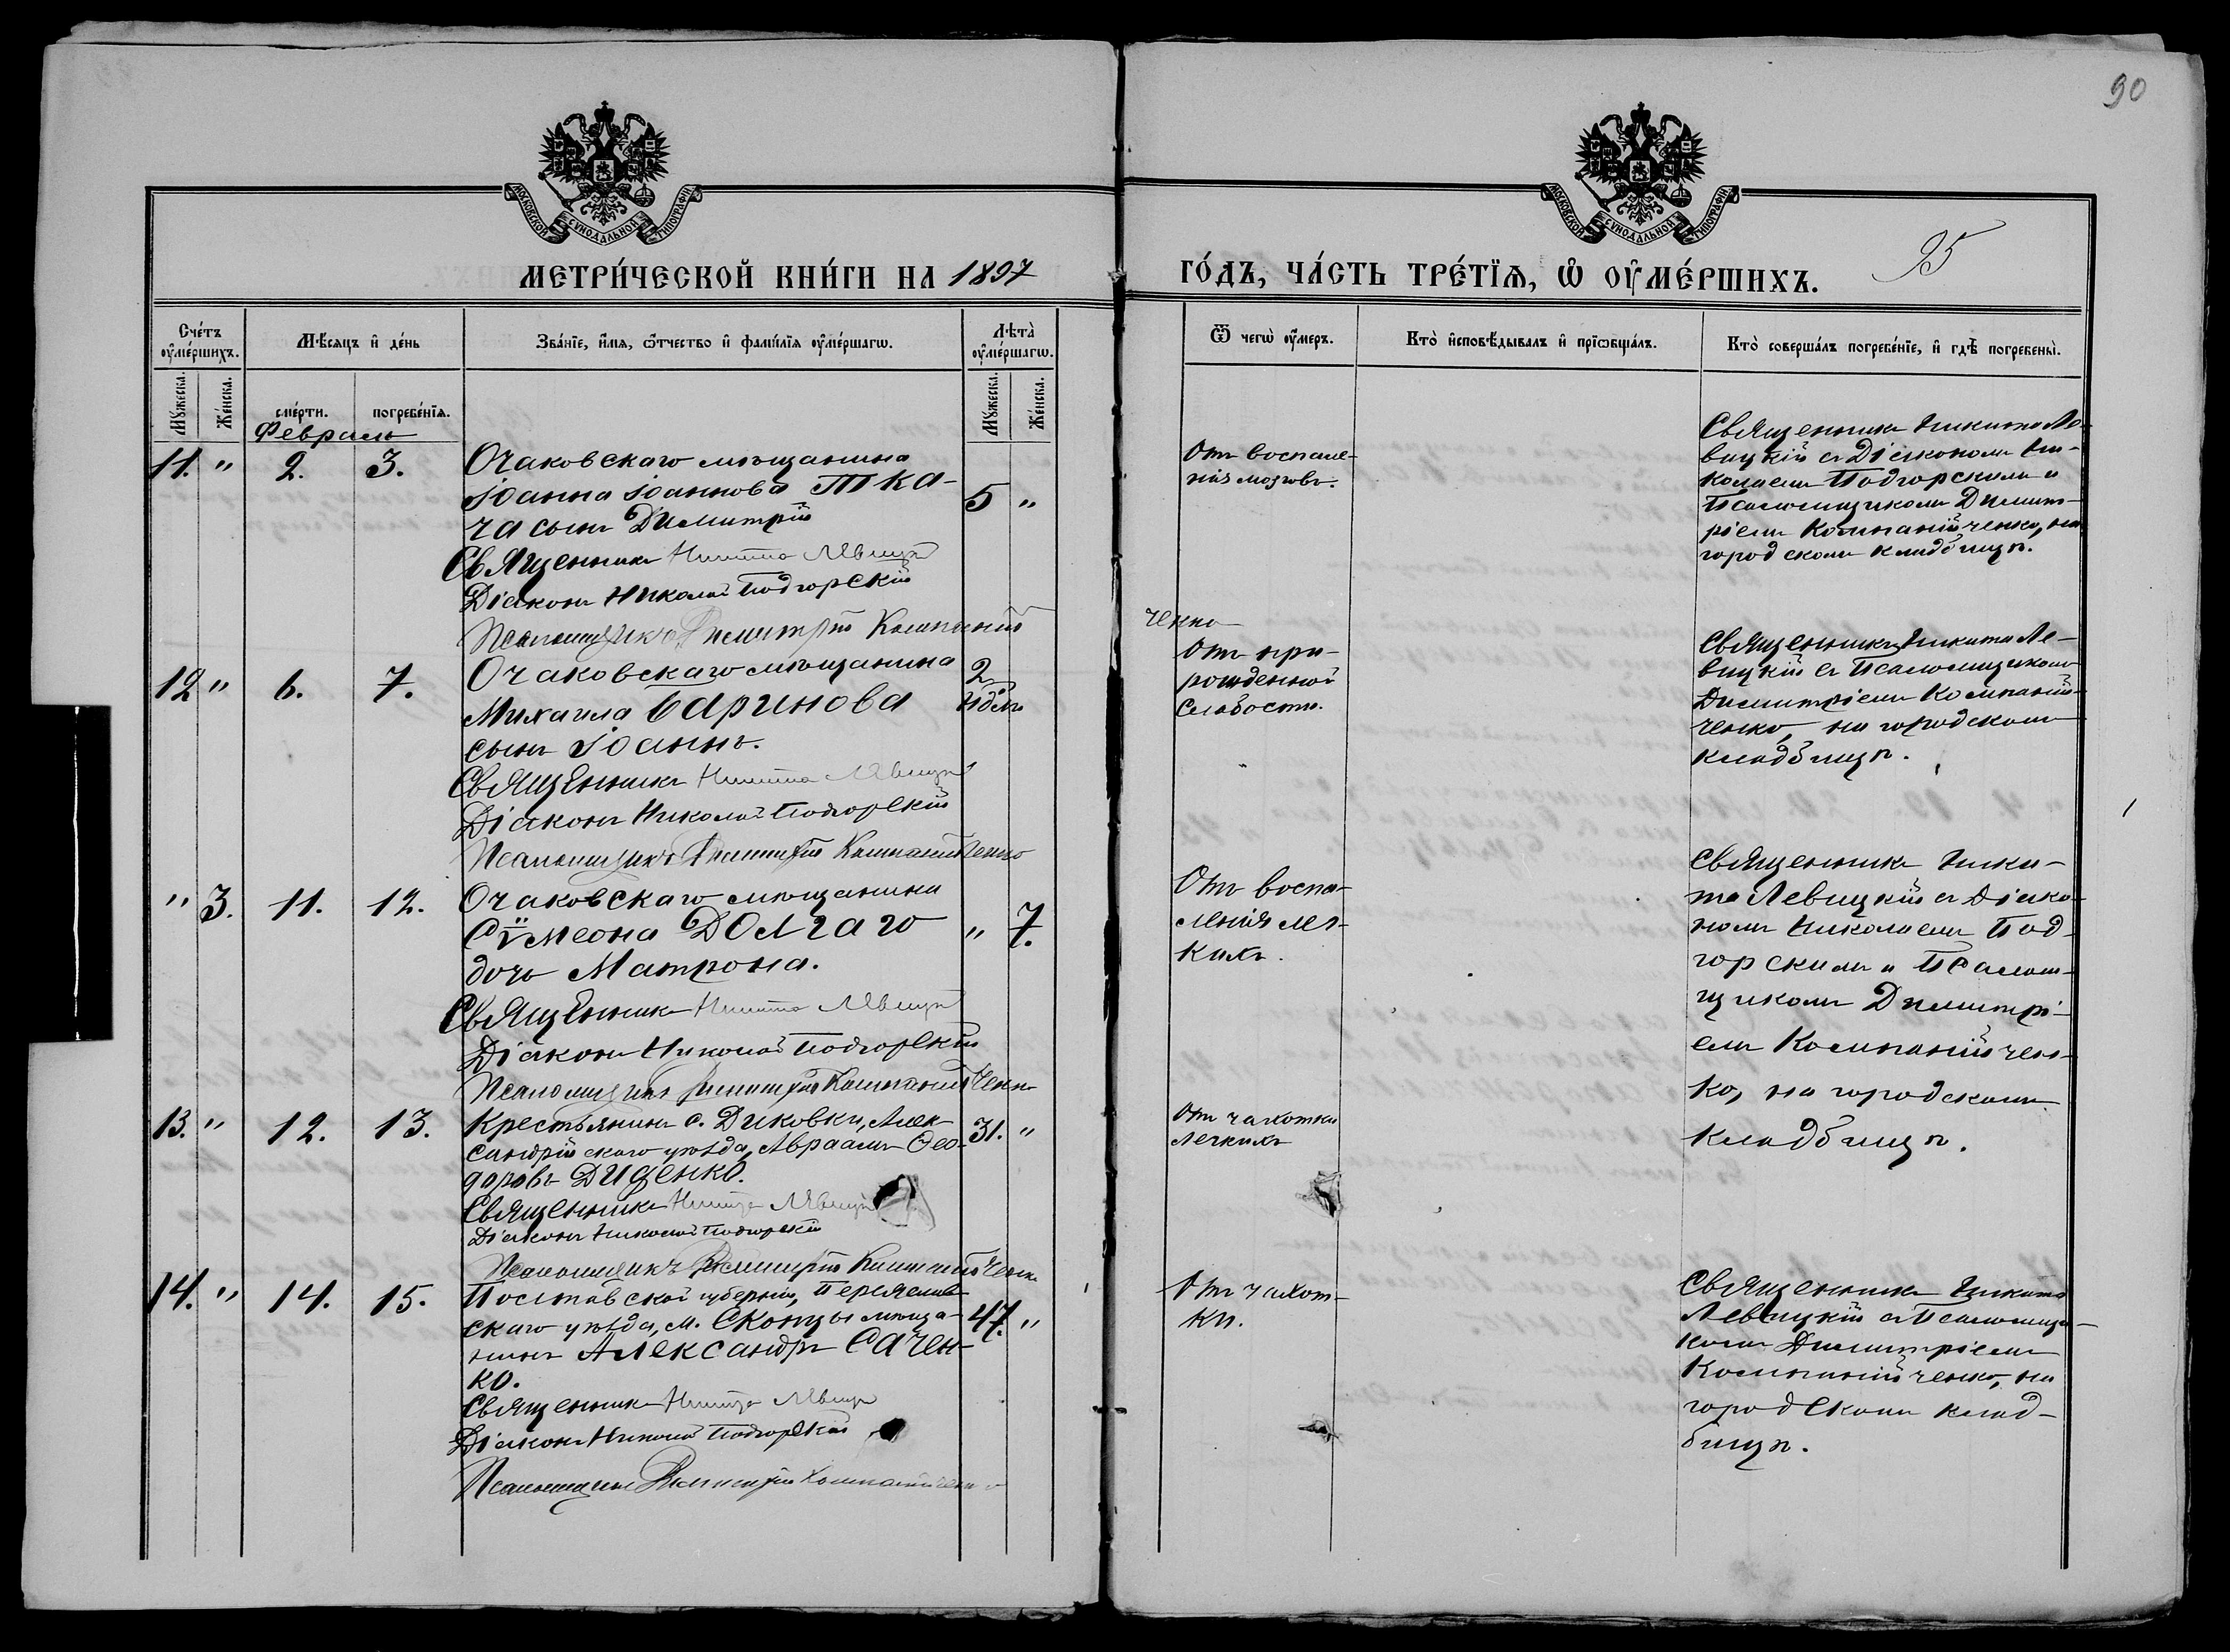 90
95
МОСКОВСКОЙ СѴНОДАЛЬНОЙ ТИПОГРАФІИ
МОСКОВСКОЙ СѴНОДАЛЬНОЙ ТИПОГРАФІИ
МЕТРИ́ЧЕСКОЙ КНИ́ГИ НА 1897
ГО́ДЪ, ЧА́СТЬ ТРЕ́ТЇѦ, Ѡ҆ ОУ҆МЕ́РШИХЪ.
Сче́тъ оу҆ме́ршихъ.
Мѣ́сѧцъ и҆ де́нь
Зва́нїе, и҆́мѧ, ѻ҆́тчество и҆ фами́лїѧ оу҆ме́ршагѡ.
Лѣ̀та оу҆ме́ршагѡ.
Ѿ чегѡ̀ оу҆́меръ.
Кто̀ и҆сповѣ́дывалъ и҆ прїѡбща́лъ.
Кто̀ соверша́лъ погребе́нїе, и҆ гдѣ̀ погребены̀.
Мꙋ́жеска.
Же́нска.
сме́рти.
погребе́нїѧ.
Мꙋ́жеска.
Же́нска.
Февраль
11. " 2. 3.
Очаковскаго мѣщанина
Іоанна Іоаннова Тка-
ча сынъ Димитрій
5 "
Священникъ Никита Левицкій
Діаконъ Николай Подгорскій
Псаломщикъ Димитрій Компаній
ченко
Отъ воспале-
нія мозговъ.
Священникъ Никита Ле-
вицкій съ Діакономъ Ни-
колаемъ Подгорскимъ и
Псаломщикомъ Димит-
ріемъ Компанійченко, на
городскомъ кладбищѣ.
12 " 6. 7.
Очаковскаго мѣщанина
Михаила Баринова
сынъ Іоаннъ.
2
ндѣл.
Священникъ Никита Левицкій
Діаконъ Николай Подгорскій
Псаломщикъ Димитрій Компанійченко
Отъ при-
рожденной
слабости.
Священникъ Никита Ле-
вицкій съ Псаломщикомъ
Димитріемъ Компаній-
ченко, на городскомъ
кладбищѣ.
" 3. 11. 12.
Очаковскаго мѣщанина
Сѵмеона Долгаго
дочь Матрона.
" 7.
Священникъ Никита Левицкій
Діаконъ Николай Подгорскій
Псаломщикъ Димитрій Компанійченко
Отъ воспа-
ленія лег-
кихъ.
Священникъ Ники-
та Левицкій съ Діако-
номъ Николаемъ Под-
горскимъ и Псалом-
щикомъ Димитрі-
емъ Компанійчен-
ко, на городскомъ
кладбищѣ.
13. " 12. 13.
Крестьянинъ с. Диковки, Алек-
сандрійскаго уѣзда, Авраамъ Ѳео-
доровъ Диденко.
31. "
Священникъ Никита Левицкій
Діаконъ Николай Подгорскій
Псаломщикъ Димитрій Компанійченко
Отъ чахотки
легкихъ
14. " 14. 15.
Полтавской губерніи, Переяслав-
скаго уѣзда, м. Скопцы мѣща-
нинъ Александръ Сачен-
ко.
47. "
Священникъ Никита Левицкій
Діаконъ Николай Подгорскій
Псаломщикъ Димитрій Компанійченко
Отъ чахот-
ки.
Священникъ Никита
Левицкій съ Псаломщи-
комъ Димитріемъ
Компанійченко, на
городскомъ клад-
бищѣ.